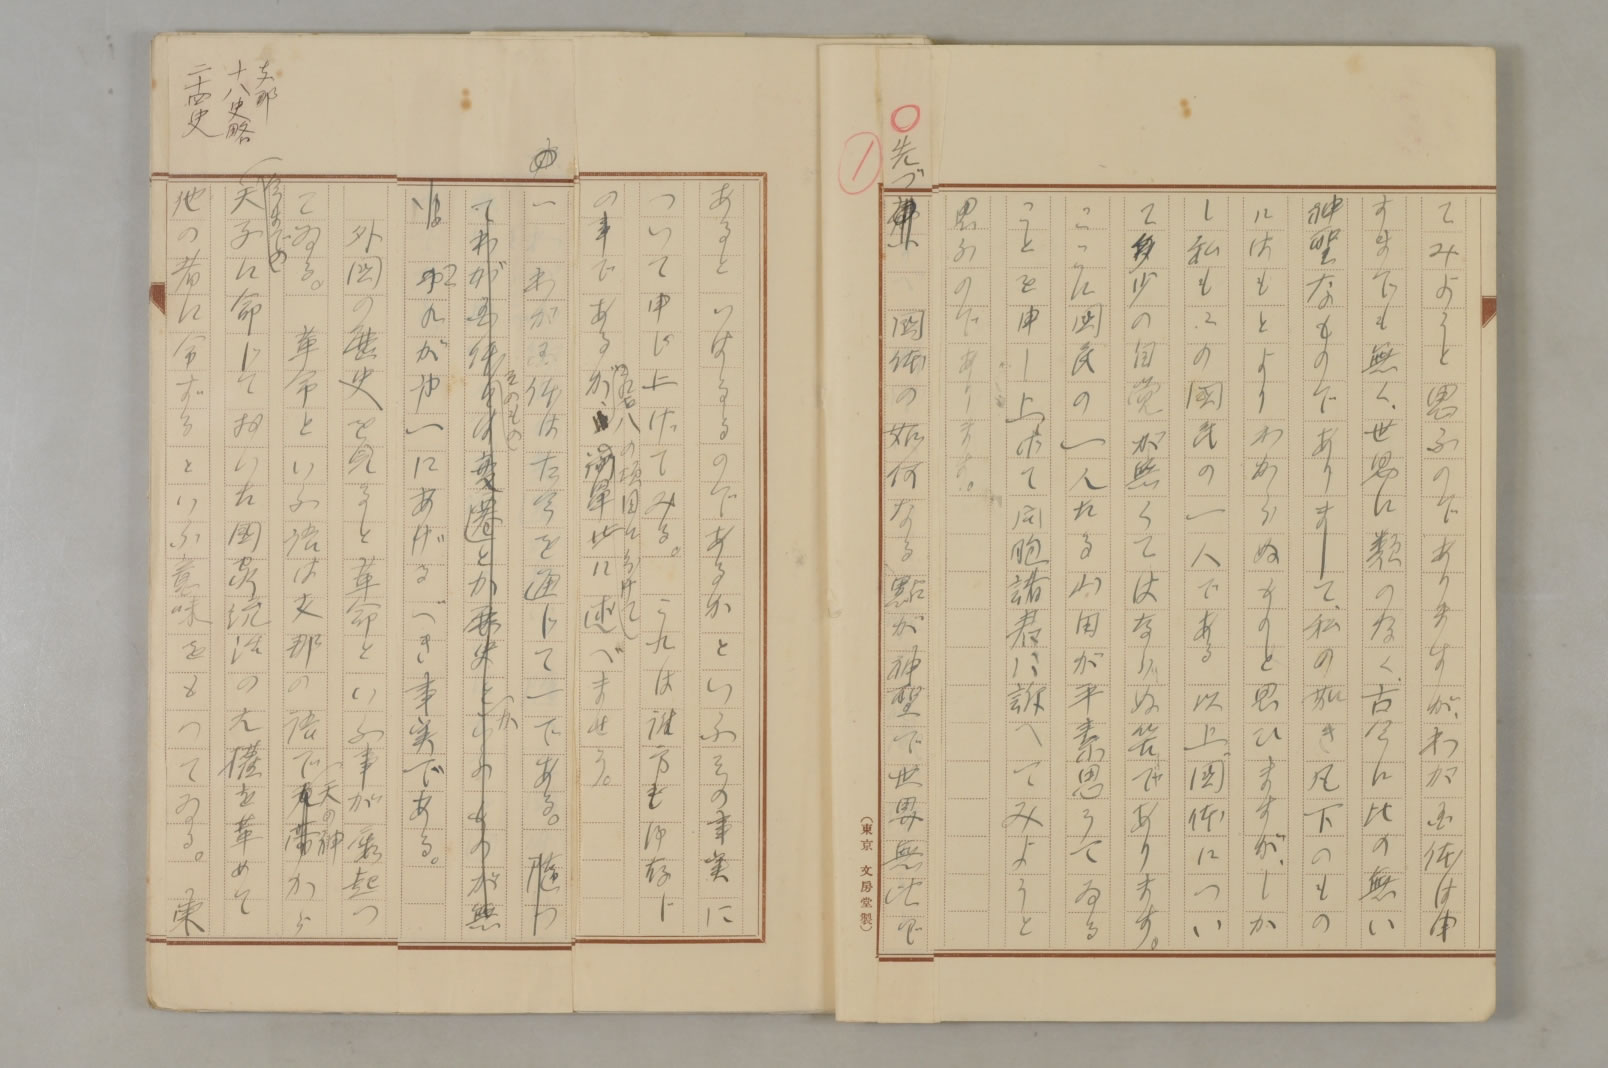 てみようと思ふのでありますが、わが国体は申
すまでも無く、世界に類のなく、古今に比の無い
神聖なものでありまして、私の如き凡下のもの
にはもとよりわからぬものと思ひますが、しか
し私もこの国民の一人である以上、国体につい
て多少の自覚が無くてはならぬ筈であります。
ここに国民の一人たる山田が平素思うてゐる
ことを申し上げて同胞諸君に訴へてみようと
思ふのであります。
先づ
国体の如何なる點が神聖で世界無比で
(東京 文房堂製)
あると いはるるのであるかといふその事実に
ついて申し上げてみる。これは誰方も御存じ
の事であるが
の項目に分けて
此に述べませう。
一 わが国体は古今を通じて一である。随つ
てわが国体
そのもの
は変遷とか歴史と
か
いふものが無
い。
これが第一にあげるべき事実である。
外国の歴史を見ると革命といふ事が屡起つ
てゐる。 革命といふ語は支那の語で
天の神
から
天子に命じておいた国家統治の大権を革めて
他の者に命ずるといふ意味をもつてゐる。東
支那
十八史略
二十四史